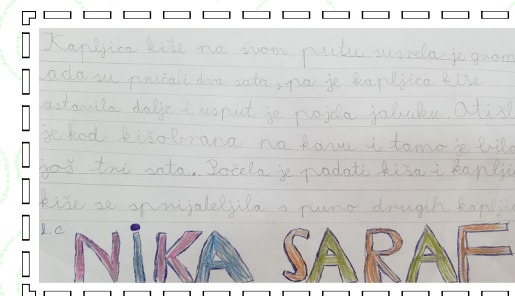 Kapljica kiše na svom putu susrela je grom
ada su pričali dva sata, pa je kapljica kiše
ostavila dalje i usput je pojela jabuku. Otišl
je kod kišobrana na kavu i tamo je bila
još tri sata. Počela je padati kiša i kaplji
kiše se sprijateljila s puno drugih kaplji
1.c NIKA SARAF